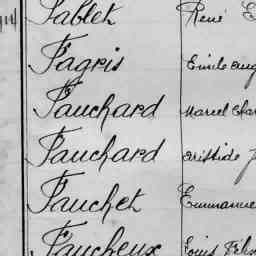 Fablet René
Fagris Emile Aug
Fauchard Marcel
Fauchard Aristide
Fauchet Emmanue
Faucheux Louis